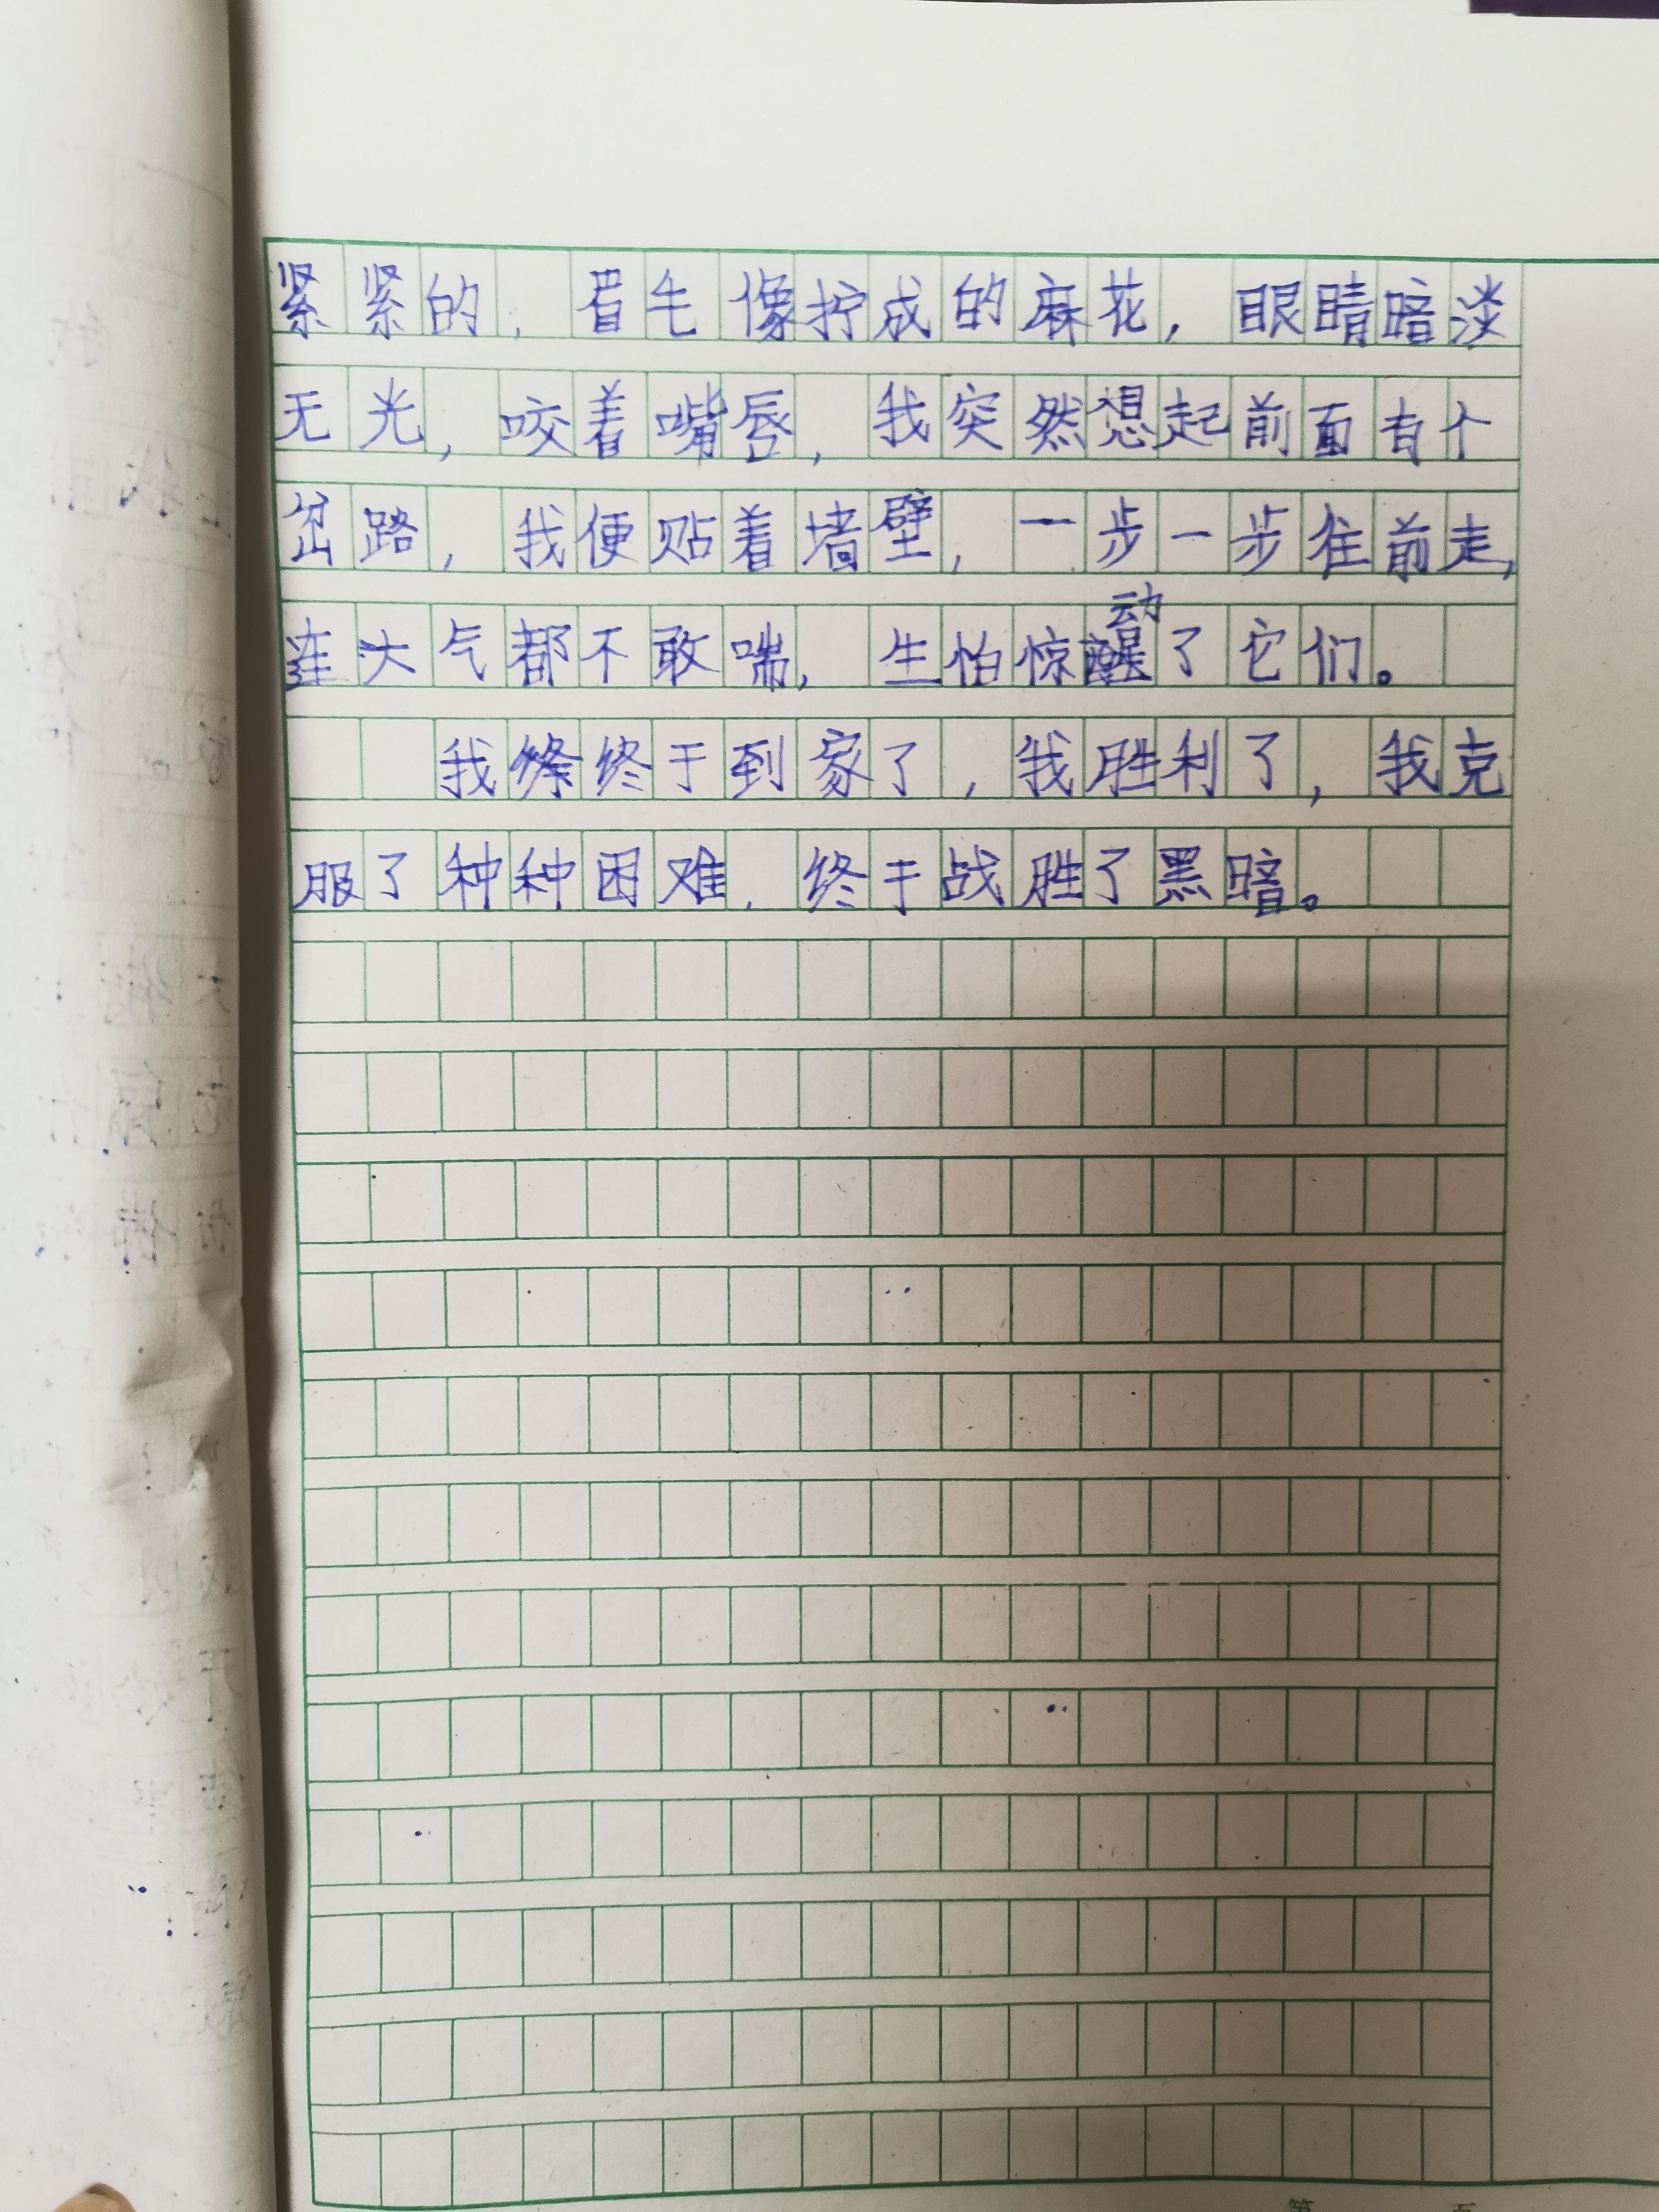 紧紧的，眉毛像拧成的麻花，眼睛暗淡
无光，咬着嘴唇，我突然想起前面有个
岔路，我便贴着墙壁，一步一步往前走，
连大气都不敢喘，生怕惊动了它们。
我终于到家了，我胜利了，我克
服了种种困难，终于战胜了黑暗。
第 页